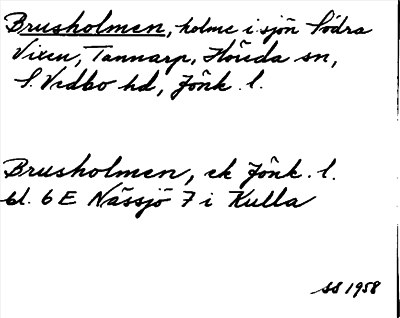 Brusholmen, holme i sjön Södra
Vixen, Tannarp, Höreda sn,
S. Vedbo hd, Jönk. l.
Brusholmen, ek Jönk. l.
bl. 6E Nässjö 7 i Kulla
SS 1958